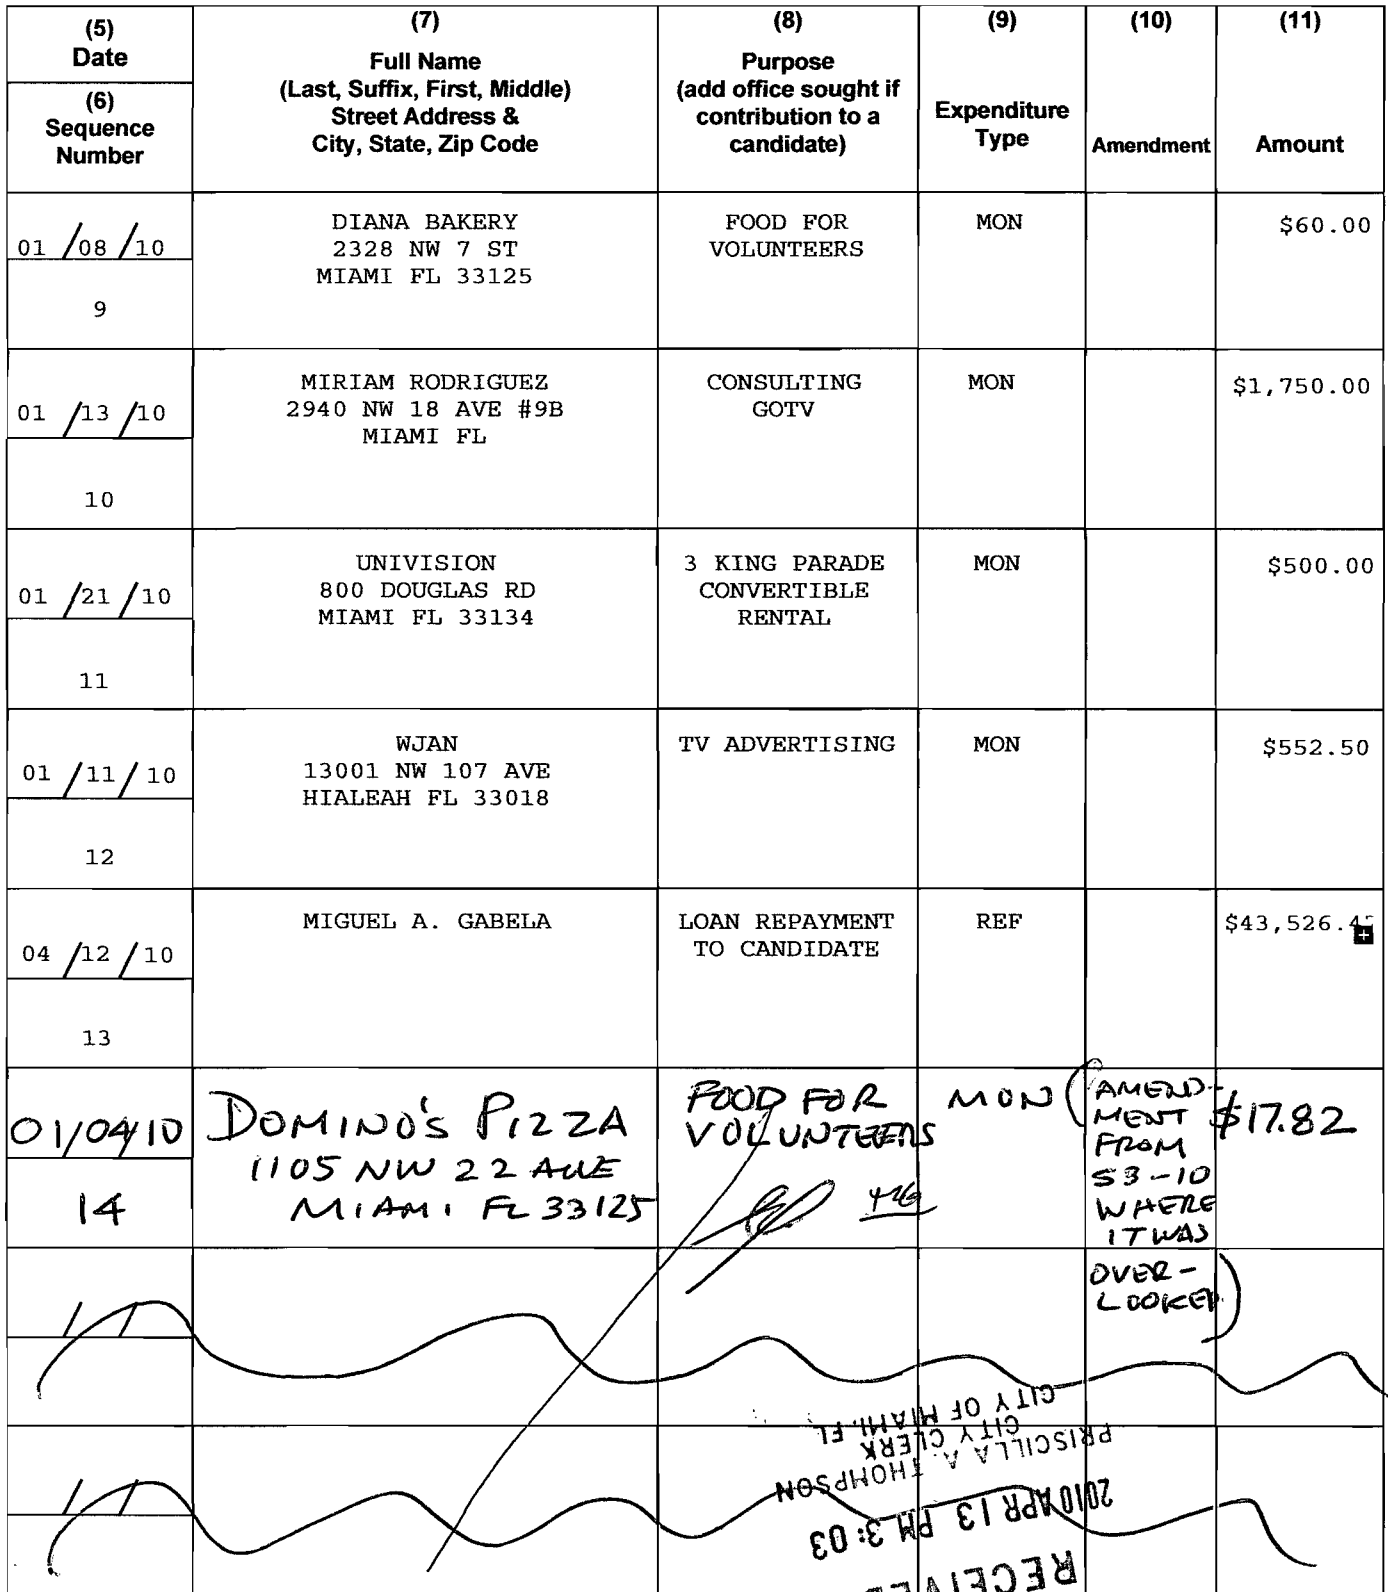 (5)
Date
(6)
Sequence
Number
(7)
Full Name
(Last, Suffix, First, Middle)
Street Address &
City, State, Zip Code
(8)
Purpose
(add office sought if
contribution to a
candidate)
(9)
Expenditure
Type
(10)
Amendment
(11)
Amount
01 /08 /10
9
DIANA BAKERY
2328 NW 7 ST
MIAMI FL 33125
FOOD FOR
VOLUNTEERS
MON
$60.00
01 /13 /10
10
MIRIAM RODRIGUEZ
2940 NW 18 AVE #9B
MIAMI FL
CONSULTING
GOTV
MON
$1,750.00
01 /21 /10
11
UNIVISION
800 DOUGLAS RD
MIAMI FL 33134
3 KING PARADE
CONVERTIBLE
RENTAL
MON
$500.00
01 /11 / 10
12
WJAN
13001 NW 107 AVE
HIALEAH FL 33018
TV ADVERTISING
MON
$552.50
04 /12 / 10
13
MIGUEL A. GABELA
LOAN REPAYMENT
TO CANDIDATE
REF
01/04/10
14
DOMINO'S PIZZA
1105 NW 22 AVE
MIAMI FL 33125
FOOD FOR
VOLUNTEERS
MON
(AMEND-
MENT
FROM
S3-10
WHERE
IT WAS
OVER-
LOOKED)
$17.82
/ /
/ /
RECEIVED
2010 APR 13 PM 3:03
PRISCILLA A. THOMPSON
CITY CLERK
CITY OF MIAMI, FL